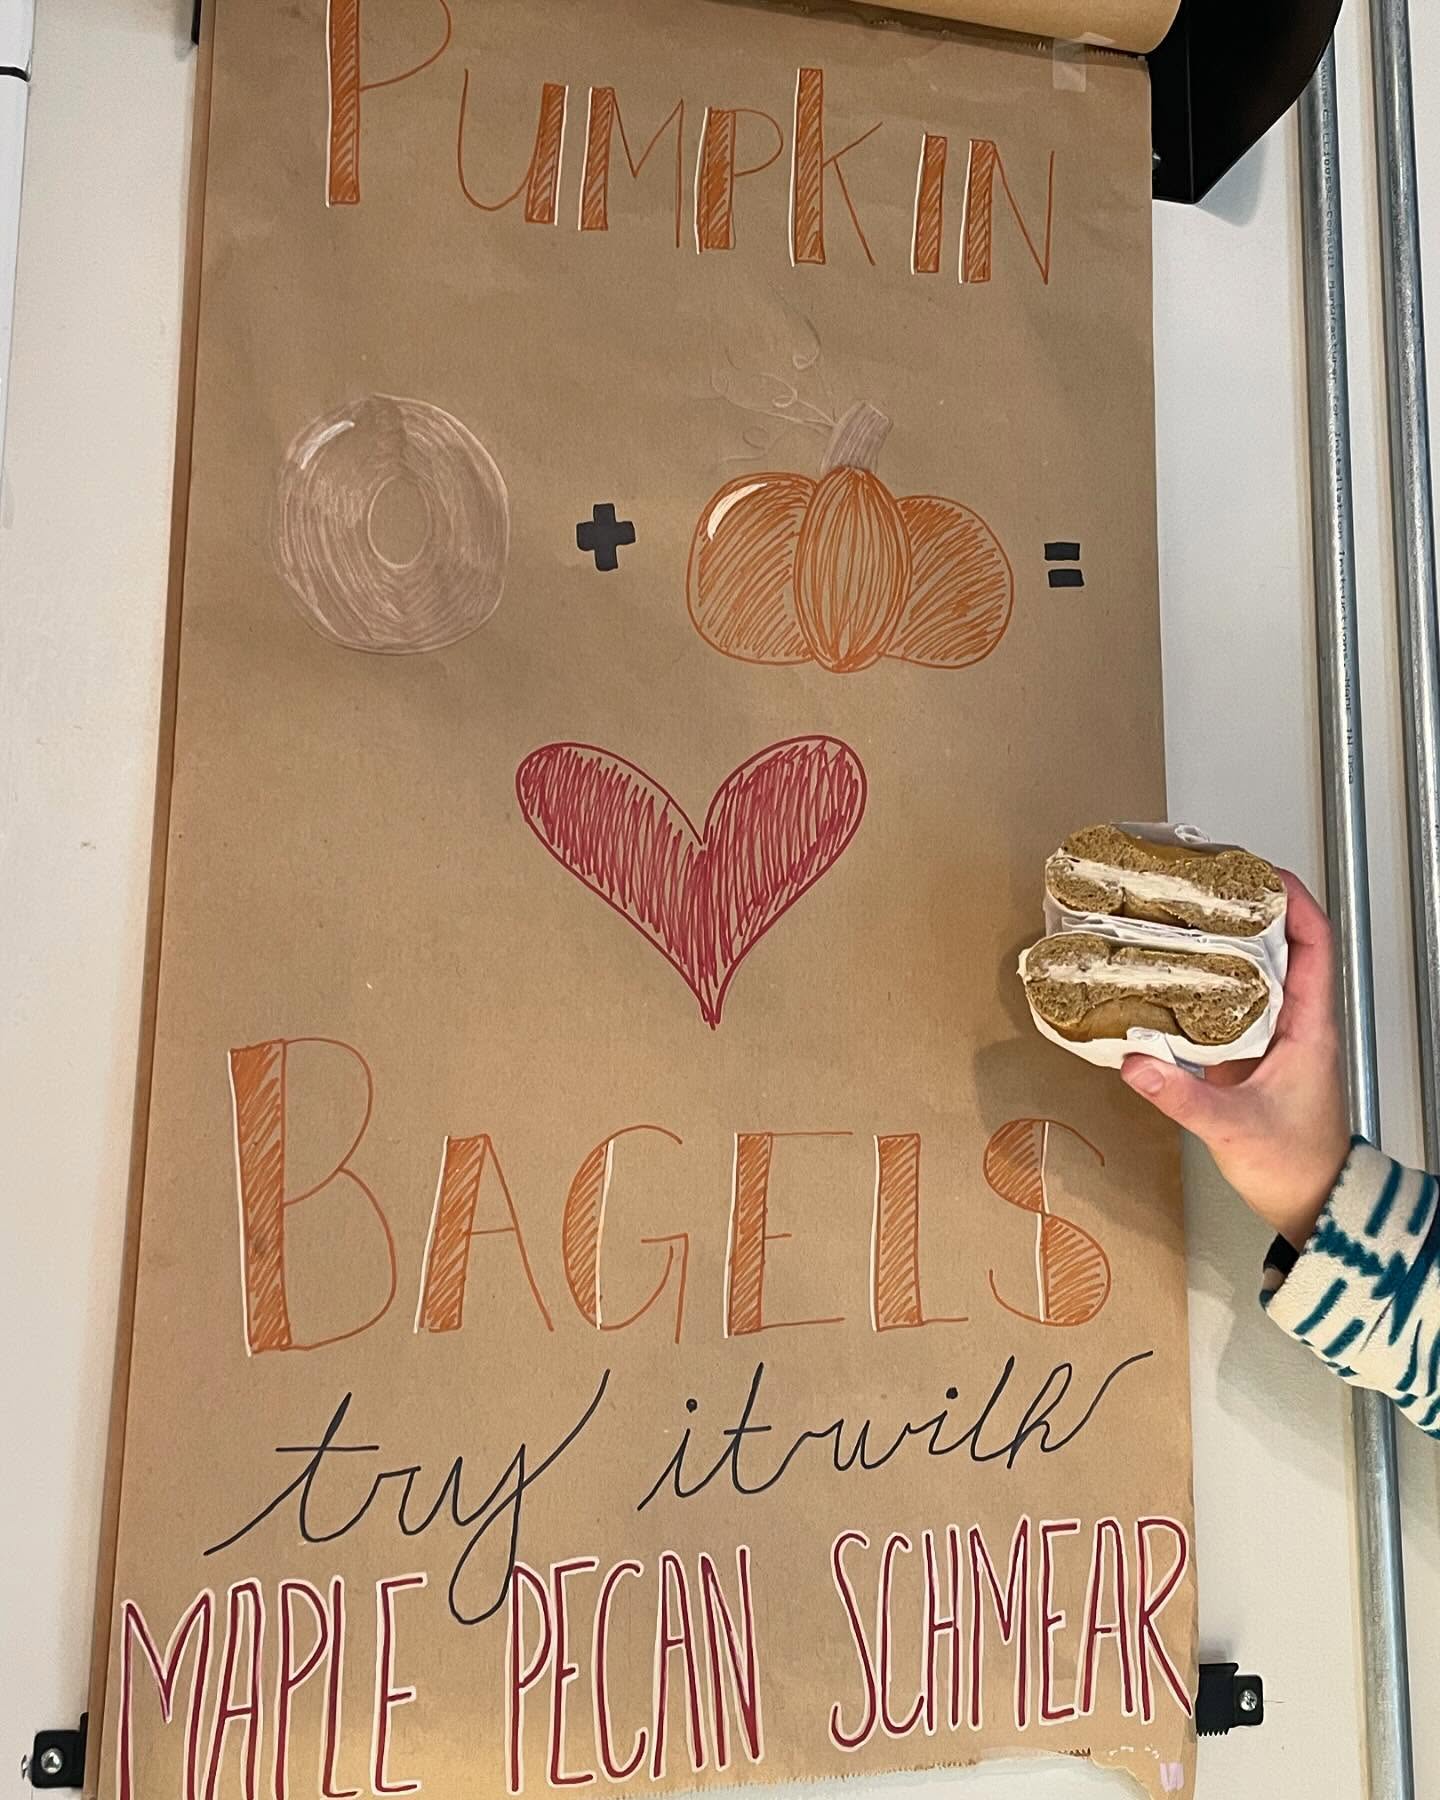 PUMPKIN
+ =
BAGELS
try it with
MAPLE PECAN SCHMEAR